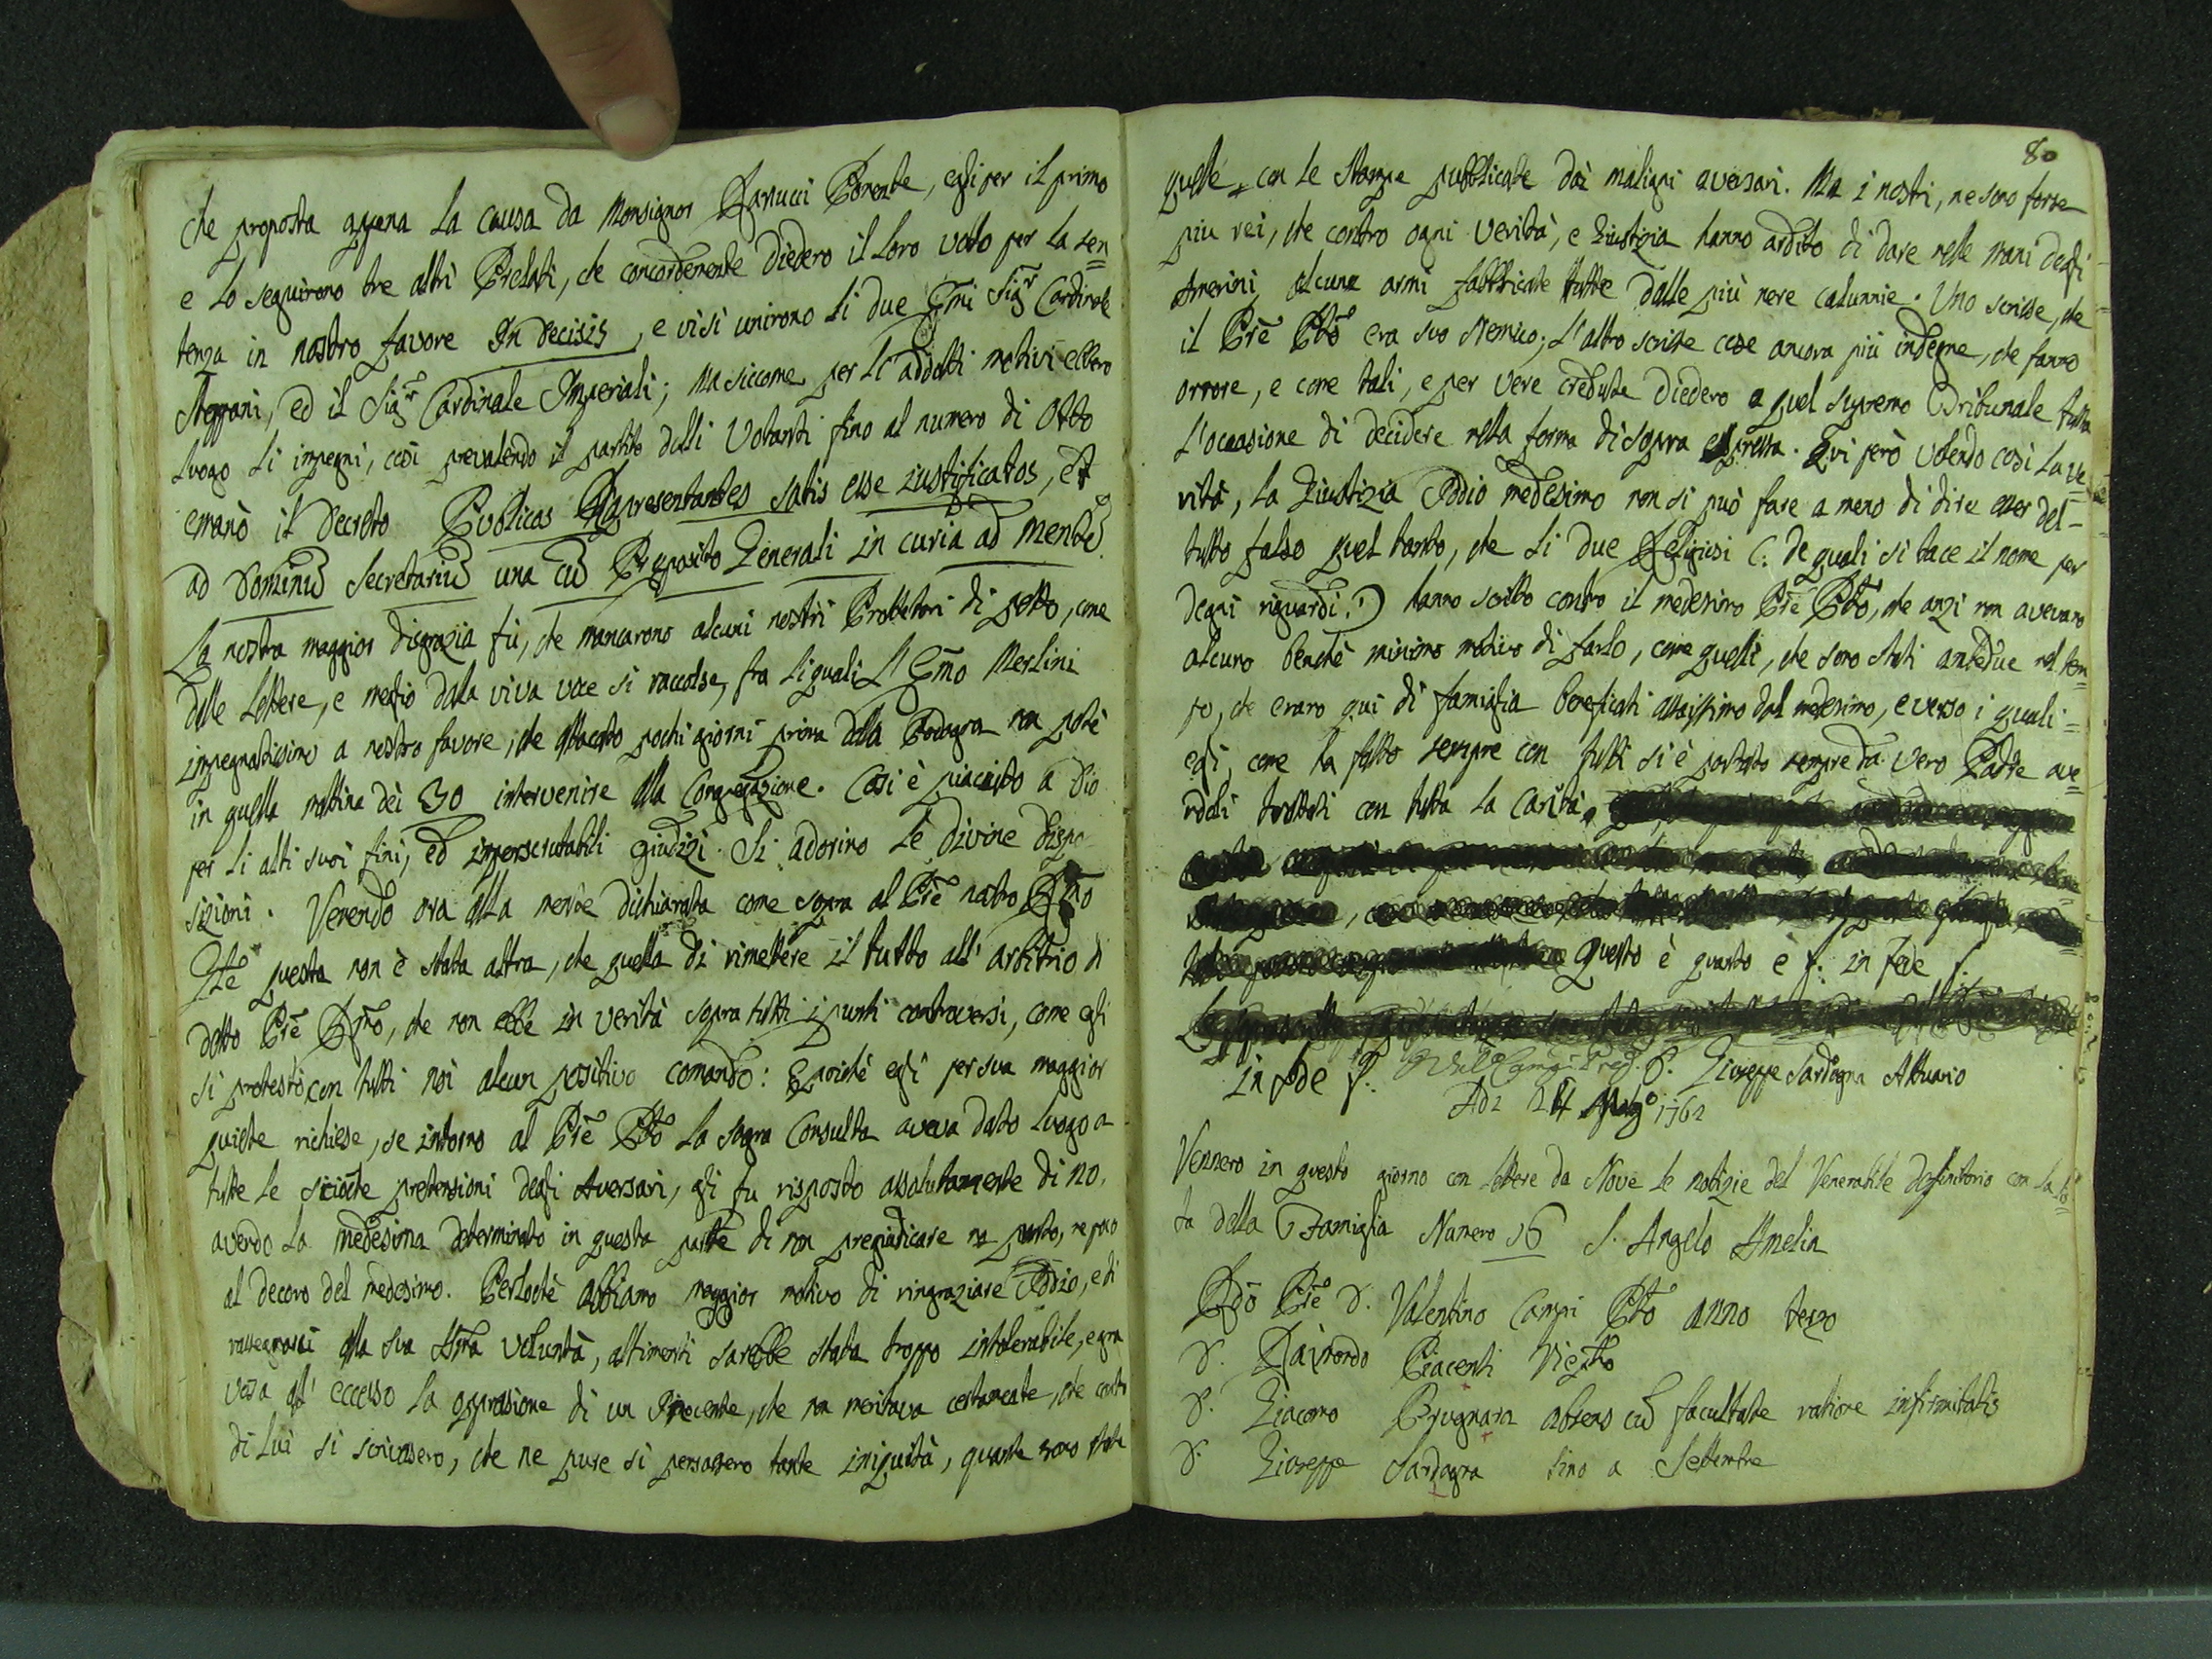 che proposta appena la causa da Monsignor Ponente, egli per il primo
e lo seguirono tre altri Prelati, che concordemente diedero il loro voto per la sen=
tenza in nostro favore In decisis, e vi si unirono li due Emi Sigr Cardinale
Steppani, ed il Sigr Cardinale Imperiali; Ma siccome per li addotti motivi ebbero
luogo li impegni, così prevalendo il partito delli Votanti fino al numero di Otto
emanò il decreto Publicos Repraesentantes satis esse iustificatos, et
ad Dominũ Secretariũ una cũ Preposito Generali in curia ad mentẽ
La nostra maggior disgrazia fù, che mancarono alcuni nostri Protettori di petto, come
dalle lettere, e meglio dalla viva voce si raccolse, fra li quali L'Emo Merlini
impegnatissimo a nostro favore, che attaccato pochi giorni prima dalla Podagra non potè
in quella mattina dei 30 intervenire alla Congregazione. Così è piaciuto a Dio
per li alti suoi fini, ed imperscrutabili giudizi. Si adorino le divine dispo
sizioni. Venendo ora alla mente dichiarata come sopra al Prẽ nostro Rmo
questa non è stata altra, che quella di rimettere il tutto all' arbitrio di
detto Prẽ Rmo, che non ebbe in verità sopra tutti i punti controversi, come egli
si protestò con tutti noi alcun positivo comando: E poichè egli per sua maggior
quiete richiese, se intorno al Prẽ Ptõ la Sagra Consulta aveva dato luogo a
tutte le sciocche pretensioni degli Aversari, gli fu risposto assolutamente di no,
avendo la medesima determinato in questa parte di non pregiudicare ne punto, ne poco
al decoro del medesimo. Perlochè abbiamo maggior motivo di ringraziare Iddio, e di
rassegnarci alla sua Sma Voluntà, altrimenti sarebbe stata troppo intolerabile, e gra
vosa all' eccesso la oppressione di un Innocente, che non meritava certamente, che contro
di lui si scrivessero, che ne pure si pensassero tante iniquità, quante sono state
80
quelle con le Stampe pubblicate dai maligni aversari. Ma i nostri, ne sono forse
piu rei, che contro ogni verità, e Giustizia hanno ardito di dare nelle mani degli
Amerini alcune armi fabbricate tutte dalle più nere calunnie. Uno scrisse, che
il Prẽ Ptõ era suo Nemico; L'altro scrisse cose ancora più indegne, che fanno
orrore, e come tali, e per vere credute diedero a quel supremo Tribunale tutta
L'occasione di decidere nella forma di sopra espressa. Qui però volendo così la ve=
rità, la Giustizia Iddio medesimo non si può fare a meno di dire esser del-
tutto falso quel tanto, che li due Religiosi (: de quali si tace il nome per
degni riguardi :) hanno scritto contro il medesimo Prẽ Ptõ, che anzi non avevano
alcuno benchè minimo motivo di farlo, come quelli, che sono stati antedue nel tem=
po, che eraro qui di famiglia beneficati assaissimo dal medesimo, e verso i quali=
egli, come ha fatto sempre con tutti si è portato sempre da vero Padre ave=
ndoli trattati con tutta la Carità.
Questo è quanto è f. in fede f.
in fede f. D. Giuseppe Sardagna Attuario
Adi 24 1762
Vennero in questo giorno con lettere da Nove le notizie del Venerabile Definitorio con la lis=
ta della Famiglia Numero 16 S. Angelo Amelia
Rdo Prẽ D. Valentino Campi Ptõ anno terzo
D. Raimondo Piacenti
D. Giacomo Prugnara absens cũ facultate ratione infirmitatis
D. Giuseppe Sardagna sino a Settembre